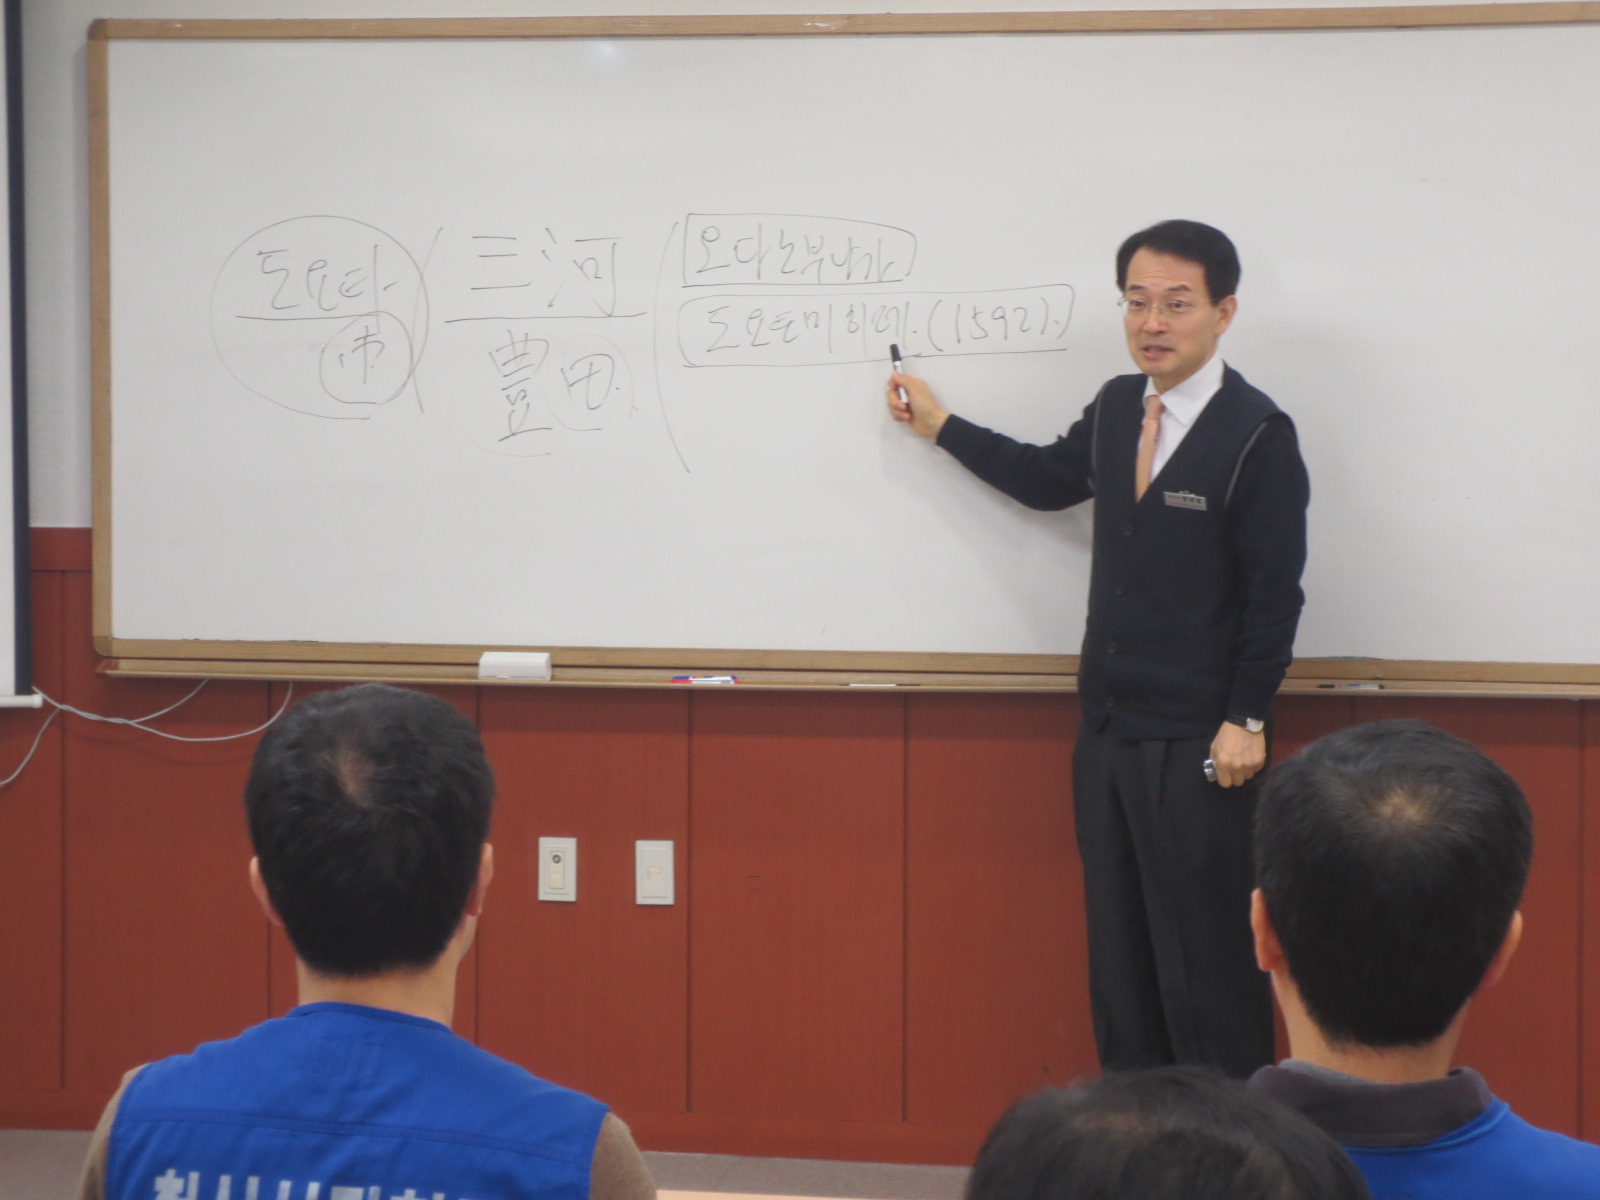 도요타
市
三河
豊田
오다노부나가
도요토미히데. (1592).